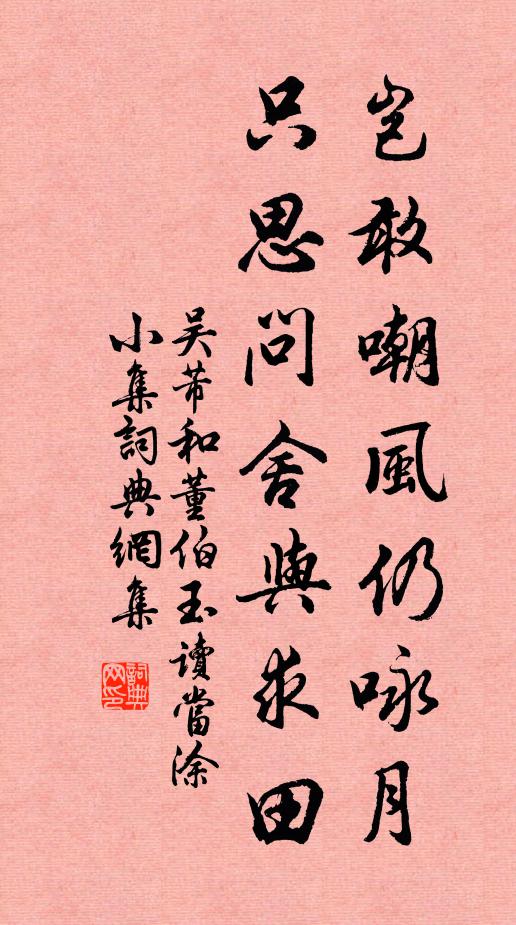 豈敢嘲風仍咏月
只思問舍與求田
吴芾和董伯玉讀當涂
小集詞典網集
詞典
网印